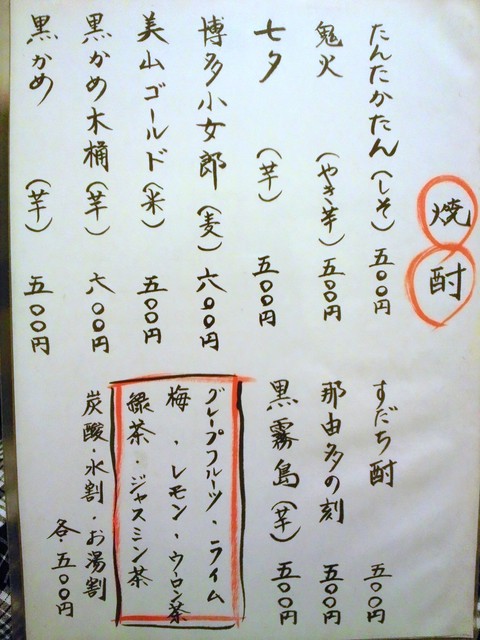 焼酎
たんたかたん(しそ) 五〇〇円
鬼火 (やき芋) 五〇〇円
七夕 (芋) 五〇〇円
博多小女郎 (麦) 六〇〇円
美山ゴールド (米) 五〇〇円
黒かめ木桶 (芋) 六〇〇円
黒かめ (芋) 五〇〇円
すだち酎 五〇〇円
那由多の刻 五〇〇円
黒霧島 (芋) 五〇〇円
グレープフルーツ・ライム
梅・レモン・ウーロン茶
緑茶・ジャスミン茶
炭酸・水割・お湯割
各・五〇〇円